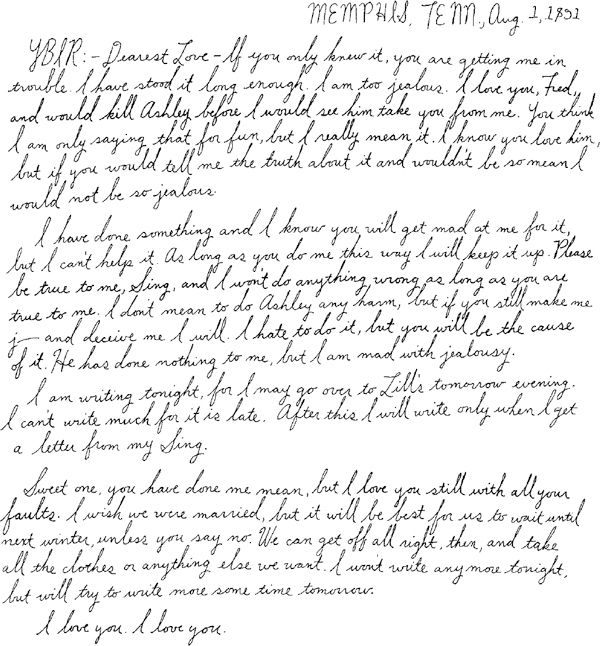 MEMPHIS, TENN., Aug. 1, 1891
YBIR:-Dearest Love-If you only knew it, you are getting me in
trouble. I have stood it long enough. I am too jealous. I love you, Fred.,
and would kill Ashley before I would see him take you from me. You think
I am only saying that for fun, but I really mean it. I know you love him,
but if you would tell me the truth about it and wouldn't be so mean I
would not be so jealous.
I have done something and I know you will get mad at me for it,
but I can't help it. As long as you do me this way I will keep it up. Please
be true to me, Sing, and I won't do anything wrong as long as you are
true to me. I don't mean to do Ashley any harm, but if you still make me
j— and deceive me I will. I hate to do it, but you will be the cause
of it. He has done nothing to me, but I am mad with jealousy.
I am writing tonight, for I may go over to Lill's tomorrow evening.
I can't write much for it is late. After this I will write only when I get
a letter from my Sing.
Sweet one, you have done me mean, but I love you still with all your
faults. I wish we were married, but it will be best for us to wait until
next winter, unless you say no. We can get off all right, then, and take
all the clothes or anything else we want. I wont write any more tonight,
but will try to write more some time tomorrow.
I love you. I love you.